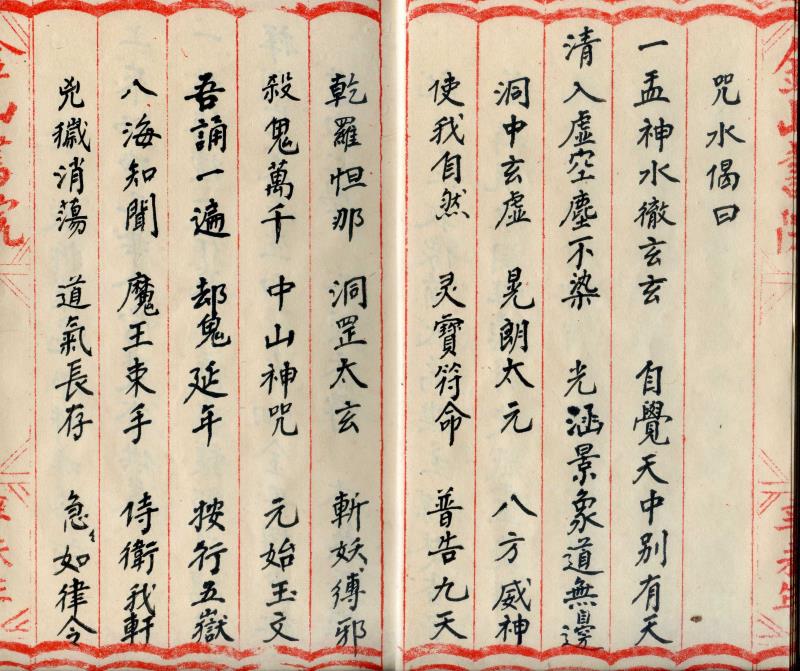 咒水偈曰
一盂神水徹玄玄 自覺天中别有天
清入虛空塵不染 光涵景象道無邊
洞中玄虛 晃朗太元 八方威神
使我自然 灵寶符命 普告九天
乾羅怛那 洞罡太玄 斬妖縛邪
殺鬼萬千 中山神咒 元始玉文
吾誦一遍 却鬼延年 按行五嶽
八海知聞 魔王束手 侍衛我軒
兇穢消蕩 道氣長存 急々如律令